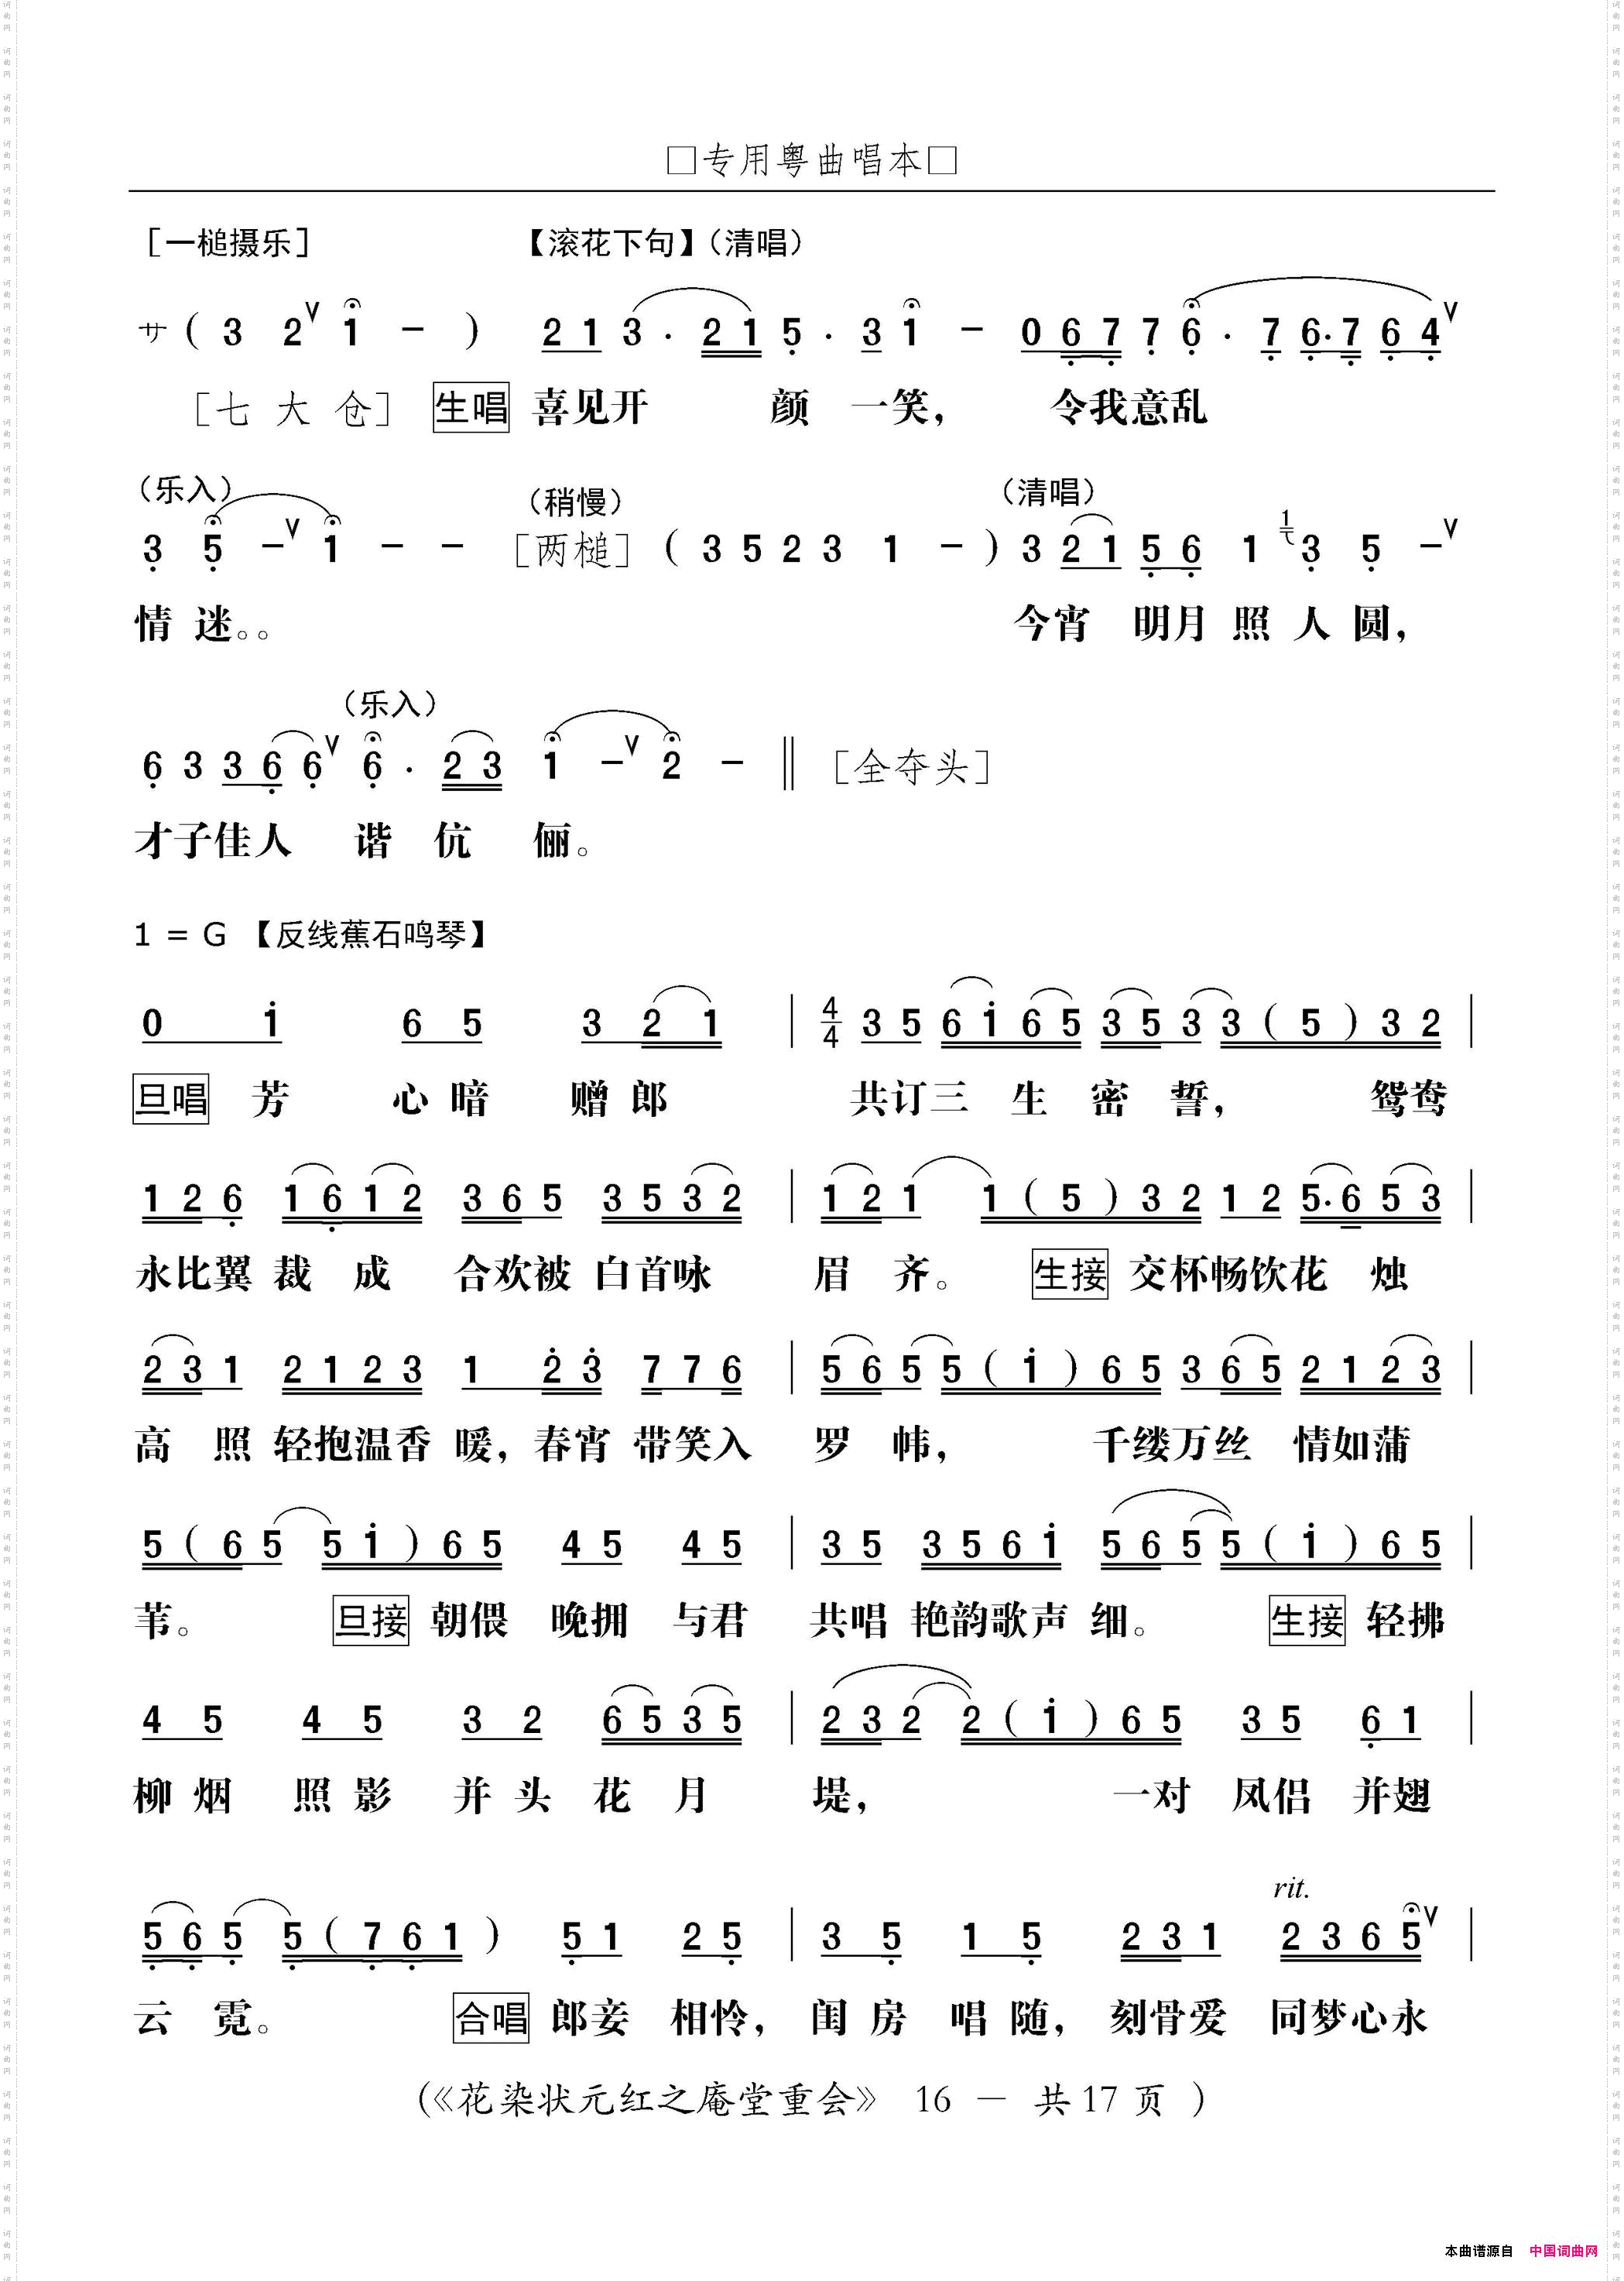 □专用粤曲唱本□
［一槌摄乐］ 【滚花下句】（清唱）
サ（ 3 2 1 － ） 2 1 3 · 2 1 5 · 3 1 － 0 6 7 7 6 · 7 6 · 7 6 4
［七 大 仓］ 生唱 喜见开 颜 一笑， 令我意乱
（乐入） （稍慢） （清唱）
3 5 － 1 － － ［两槌］（ 3 5 2 3 1 － ） 3 2 1 5 6 1 1 3 5 －
情 迷。。 今宵 明月 照 人 圆，
（乐入）
6 3 3 6 6 6 · 2 3 1 － 2 － ‖ ［全夺头］
才子佳人 谐 伉 俪。
1 = G 【反线蕉石鸣琴】
0 i 6 5 3 2 1 | 4/4 3 5 6 i 6 5 3 5 3 3（ 5 ）3 2 |
旦唱 芳 心 暗 赠 郎 共订三 生 密 誓， 鸳鸯
1 2 6 1 6 1 2 3 6 5 3 5 3 2 | 1 2 1 1（ 5 ）3 2 1 2 5 · 6 5 3 |
永比翼 裁 成 合欢被 白首咏 眉 齐。 生接 交杯畅饮花 烛
2 3 1 2 1 2 3 1 2 3 7 7 6 | 5 6 5 5（ i ）6 5 3 6 5 2 1 2 3 |
高 照 轻抱温香 暖，春宵 带笑入 罗 帏， 千缕万丝 情如蒲
5（ 6 5 5 i ）6 5 4 5 4 5 | 3 5 3 5 6 i 5 6 5 5（ i ）6 5 |
苇。 旦接 朝偎 晚拥 与君 共唱 艳韵歌声 细。 生接 轻拂
4 5 4 5 3 2 6 5 3 5 | 2 3 2 2（ i ）6 5 3 5 6 1 |
柳 烟 照 影 并 头 花 月 堤， 一对 凤侣 并翅
rit.
5 6 5 5（ 7 6 1 ） 5 1 2 5 | 3 5 1 5 2 3 1 2 3 6 5 |
云 霓。 合唱 郎妾 相怜， 闺 房 唱 随， 刻骨爱 同梦心永
（《花染状元红之庵堂重会》 16 — 共17 页 ）
本曲谱源自 中国词曲网